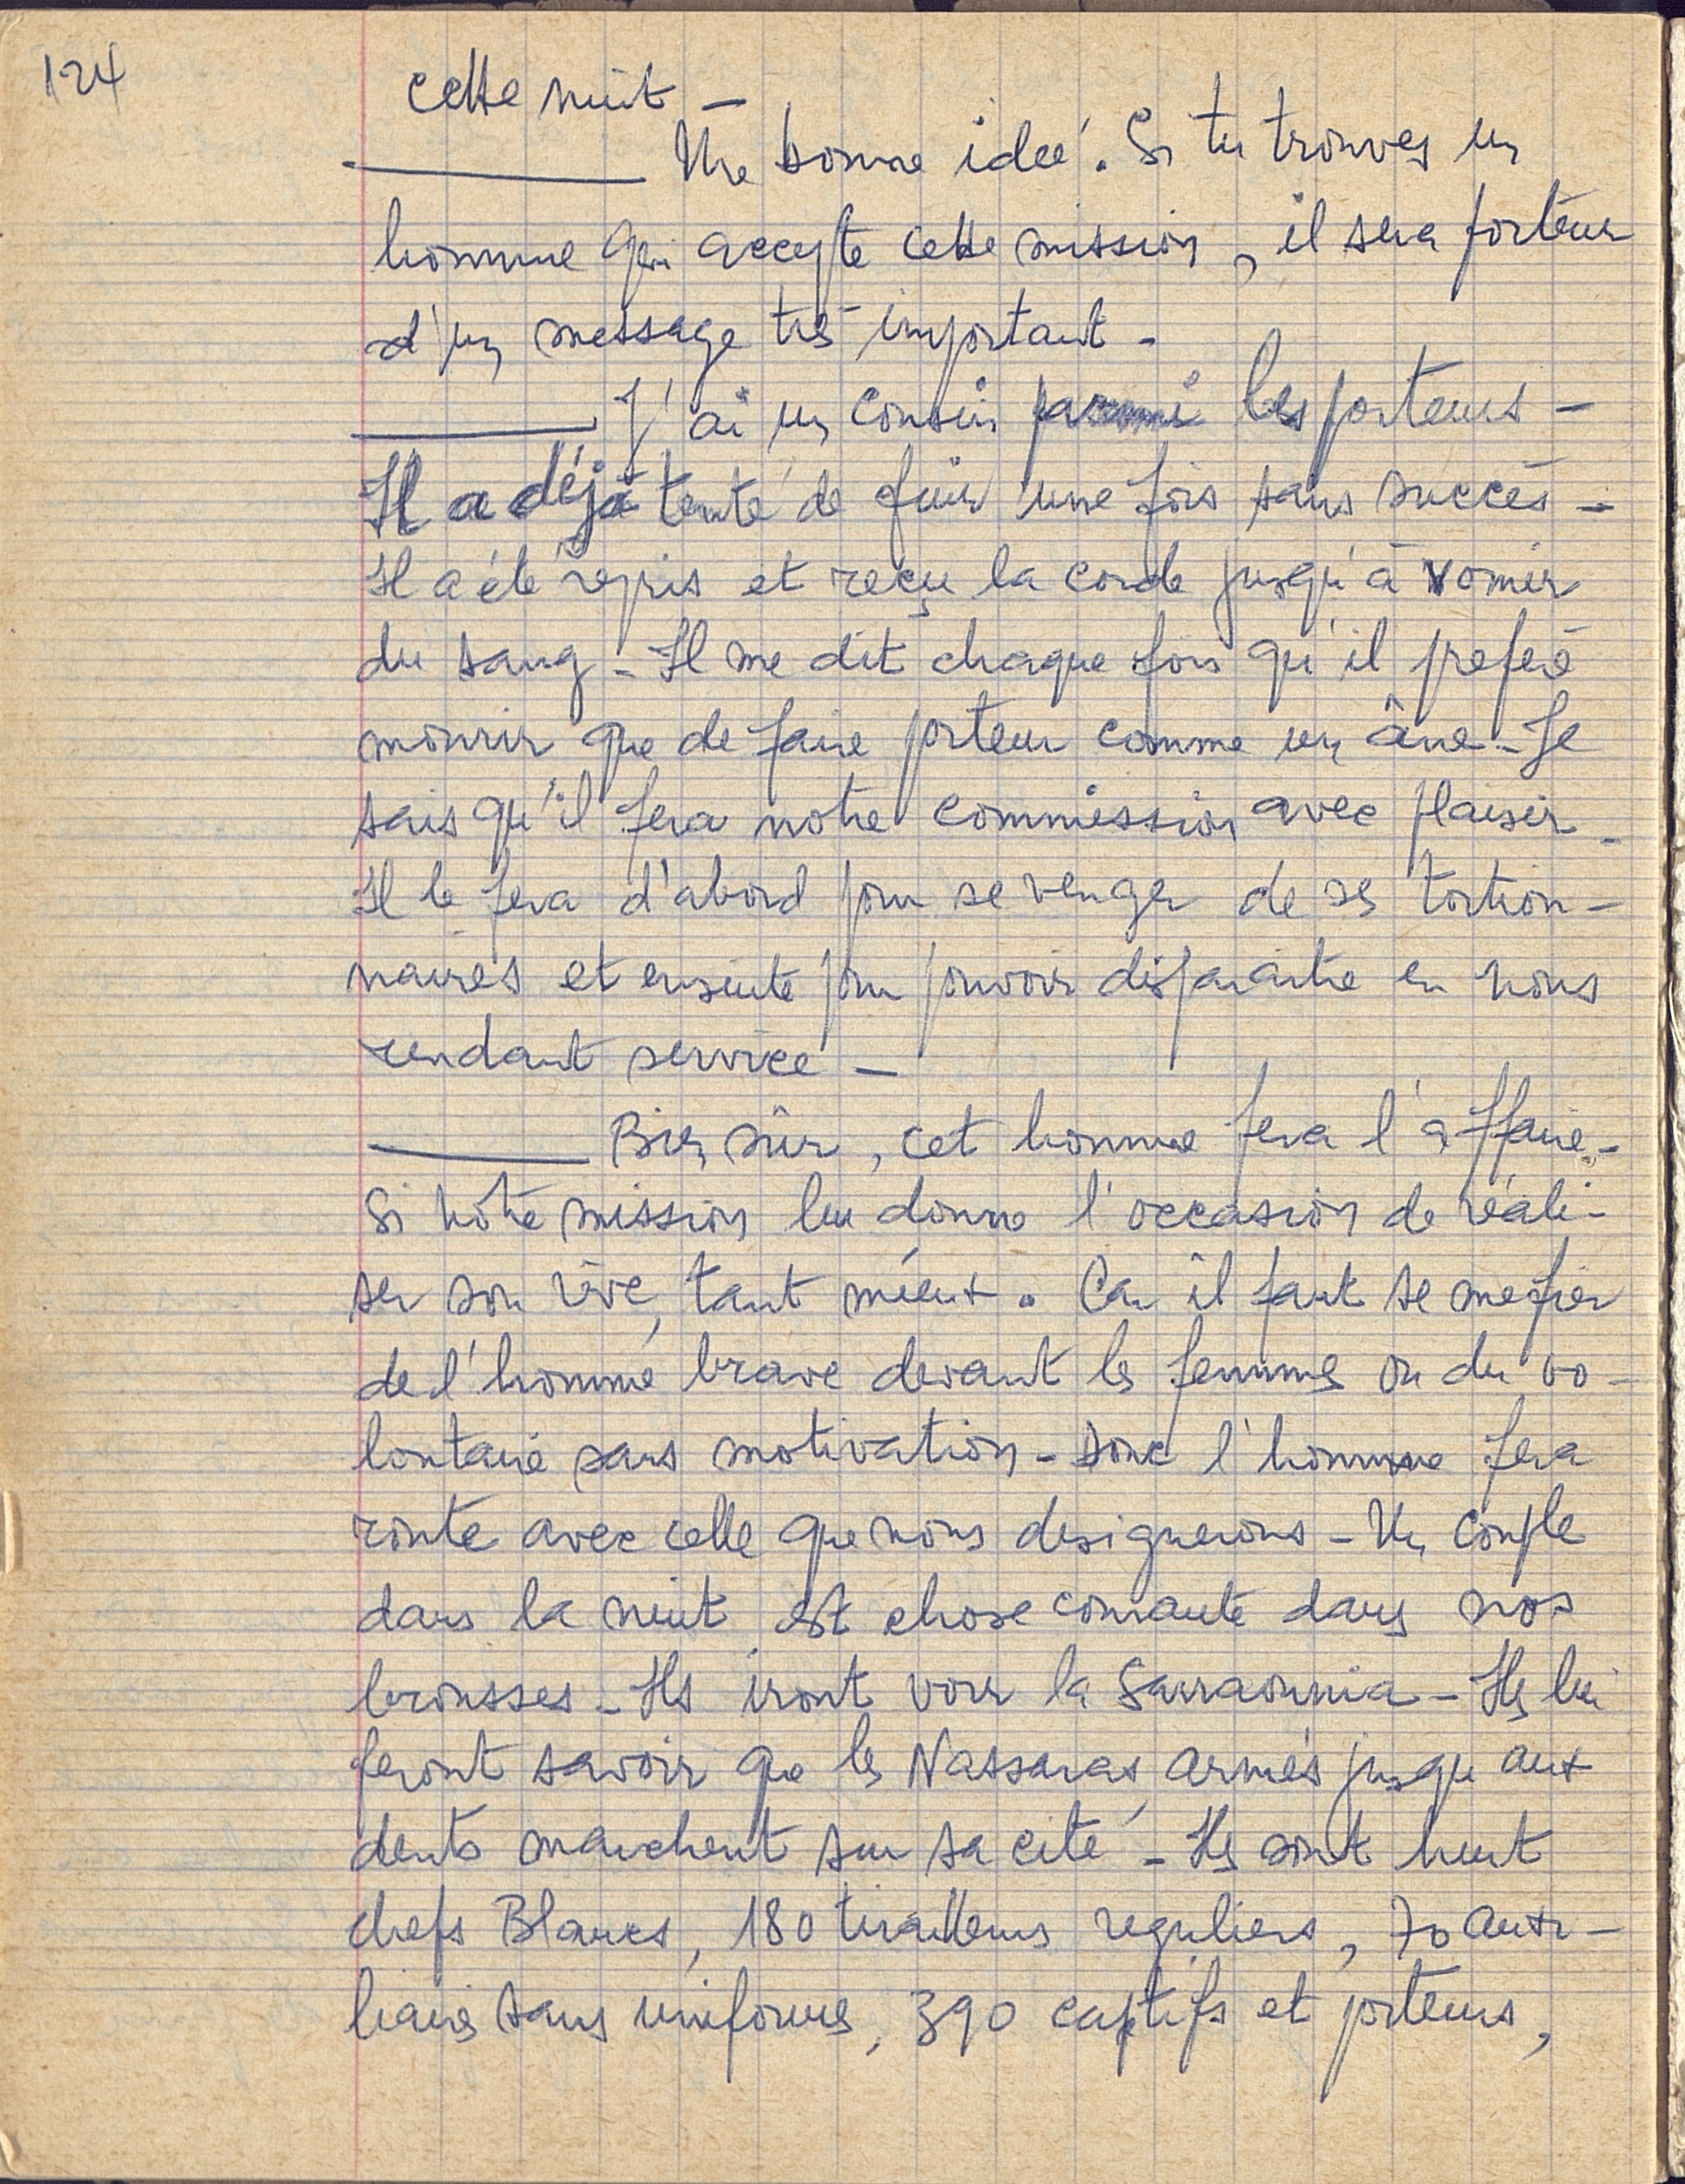 124
cette nuit —
——— Une bonne idée. Si tu trouves un
homme qui accepte cette mission, il sera porteur
d'un message très important -
——— J'ai un cousin parmi les porteurs -
Il a déjà tenté de fuir une fois sans succès -
Il a été repris et reçu la corde jusqu'à vomir
du sang - Il me dit chaque fois qu'il préfère
mourir que de faire porteur comme un âne - Je
sais qu'il fera notre commission avec plaisir -
Il le fera d'abord pour se venger de ses tortion-
naires et ensuite pour pouvoir disparaître en nous
rendant service -
——— Bien sûr, cet homme fera l'affaire -
Si notre mission lui donne l'occasion de réali-
ser son rêve, tant mieux. Car il faut se mefier
de l'homme brave devant les femmes ou du vo-
lontaire sans motivation - Donc l'homme fera
route avec celle que nous designerons - Un couple
dans la nuit est chose courante dans nos
brousses - Ils iront voir la Sarraounia - Ils lui
feront savoir que les Nassaras armés jusqu'aux
dents marchent sur sa cité - Ils sont huit
chefs Blancs, 180 tirailleurs reguliers, 70 auxi-
liaires sans uniformes, 390 captifs et porteurs,